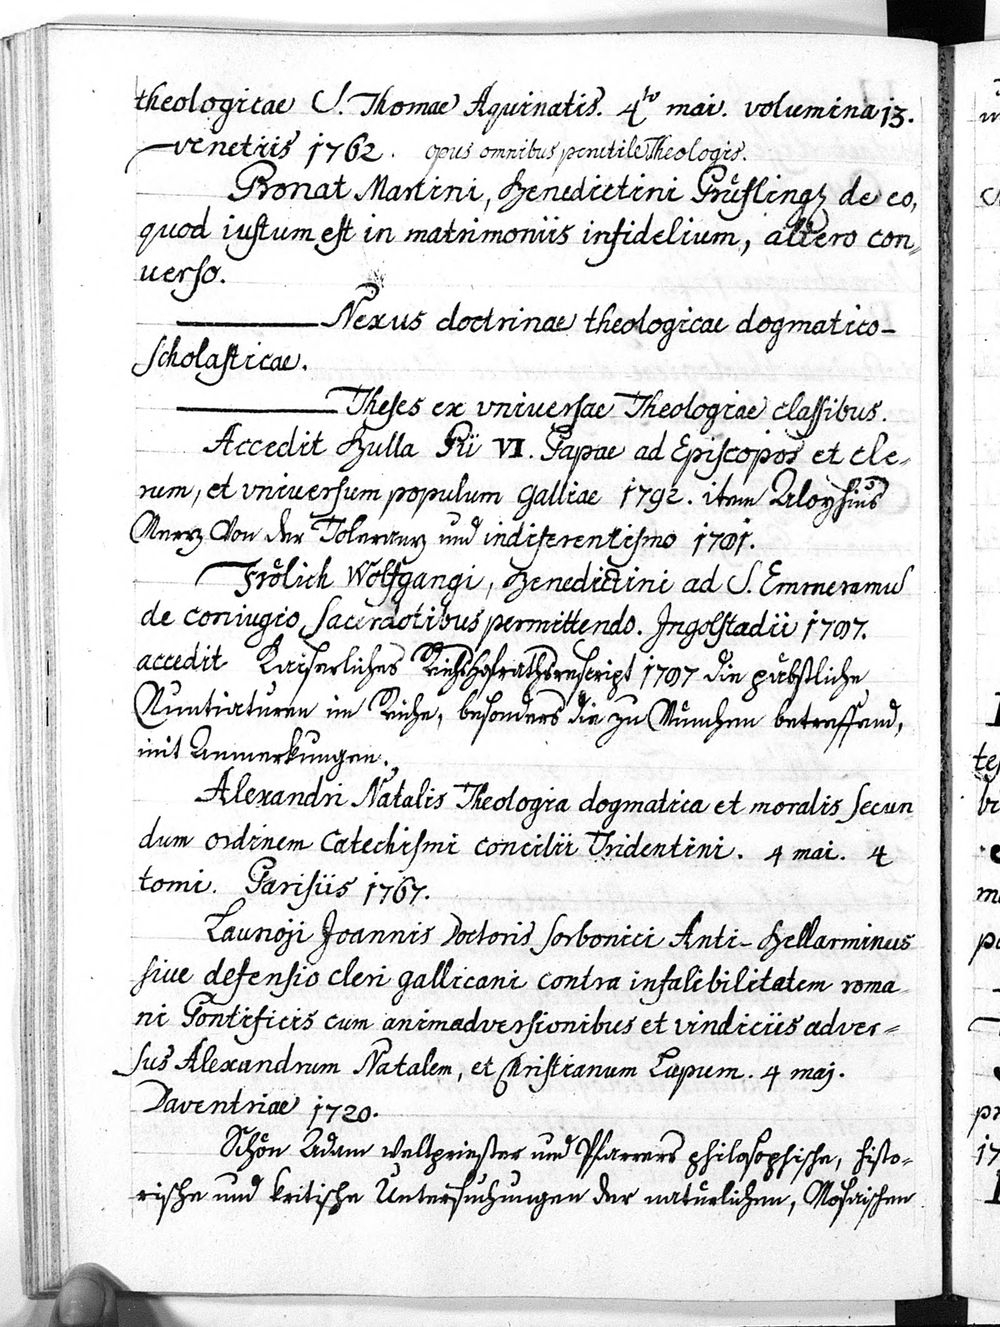 theologicae S. Thomae Aquinatis. 4to mai. volumina 13.
venetiis 1762. opus omnibus perutile Theologis.
Pronat Martini, Benedictini Prüflingg de eo,
quod iustum est in matrimoniis infidelium, altero con=
verso.
Nexus doctrinae theologicae dogmatico-
Scholasticae.
Theses ex vniversae Theologiae classibus.
Accedit Bulla Pii VI. Papae ad Episcopos et cle-
rum, et vniversum populum Galliae 1792. item Aloysius
Merz Von der Toleranz und indiferentismo 1791.
Frölich Wolfgangi, Benedictini ad S. Emmeramus
de coniugio Sacerdotibus permittendo. Ingolstadii 1797.
accedit Kaiserliches Reichshofrathsrescript 1797 die päbstliche
Nuntiaturen im Reiche, besonders die zu München betreffend,
mit Anmerkungen.
Alexandri Natalis Theologia dogmatica et moralis secun
dum ordinem Catechismi concilii Tridentini. 4 mai. 4
tomi. Parisiis 1767.
Launoji Joannis Doctoris Sorbonici Anti-Bellarminus
sive defensio cleri gallicani contra infalibilitatem roma
ni Pontificis cum animadversionibus et vindiciis adver=
sus Alexandrum Natalem, et Christianum Lupum. 4 maj.
Daventriae 1720.
Schön Adam weltpriester und Pfarrers philosophische, histo=
rische und kritische Untersuchungen der natürlichen, Mosaischen